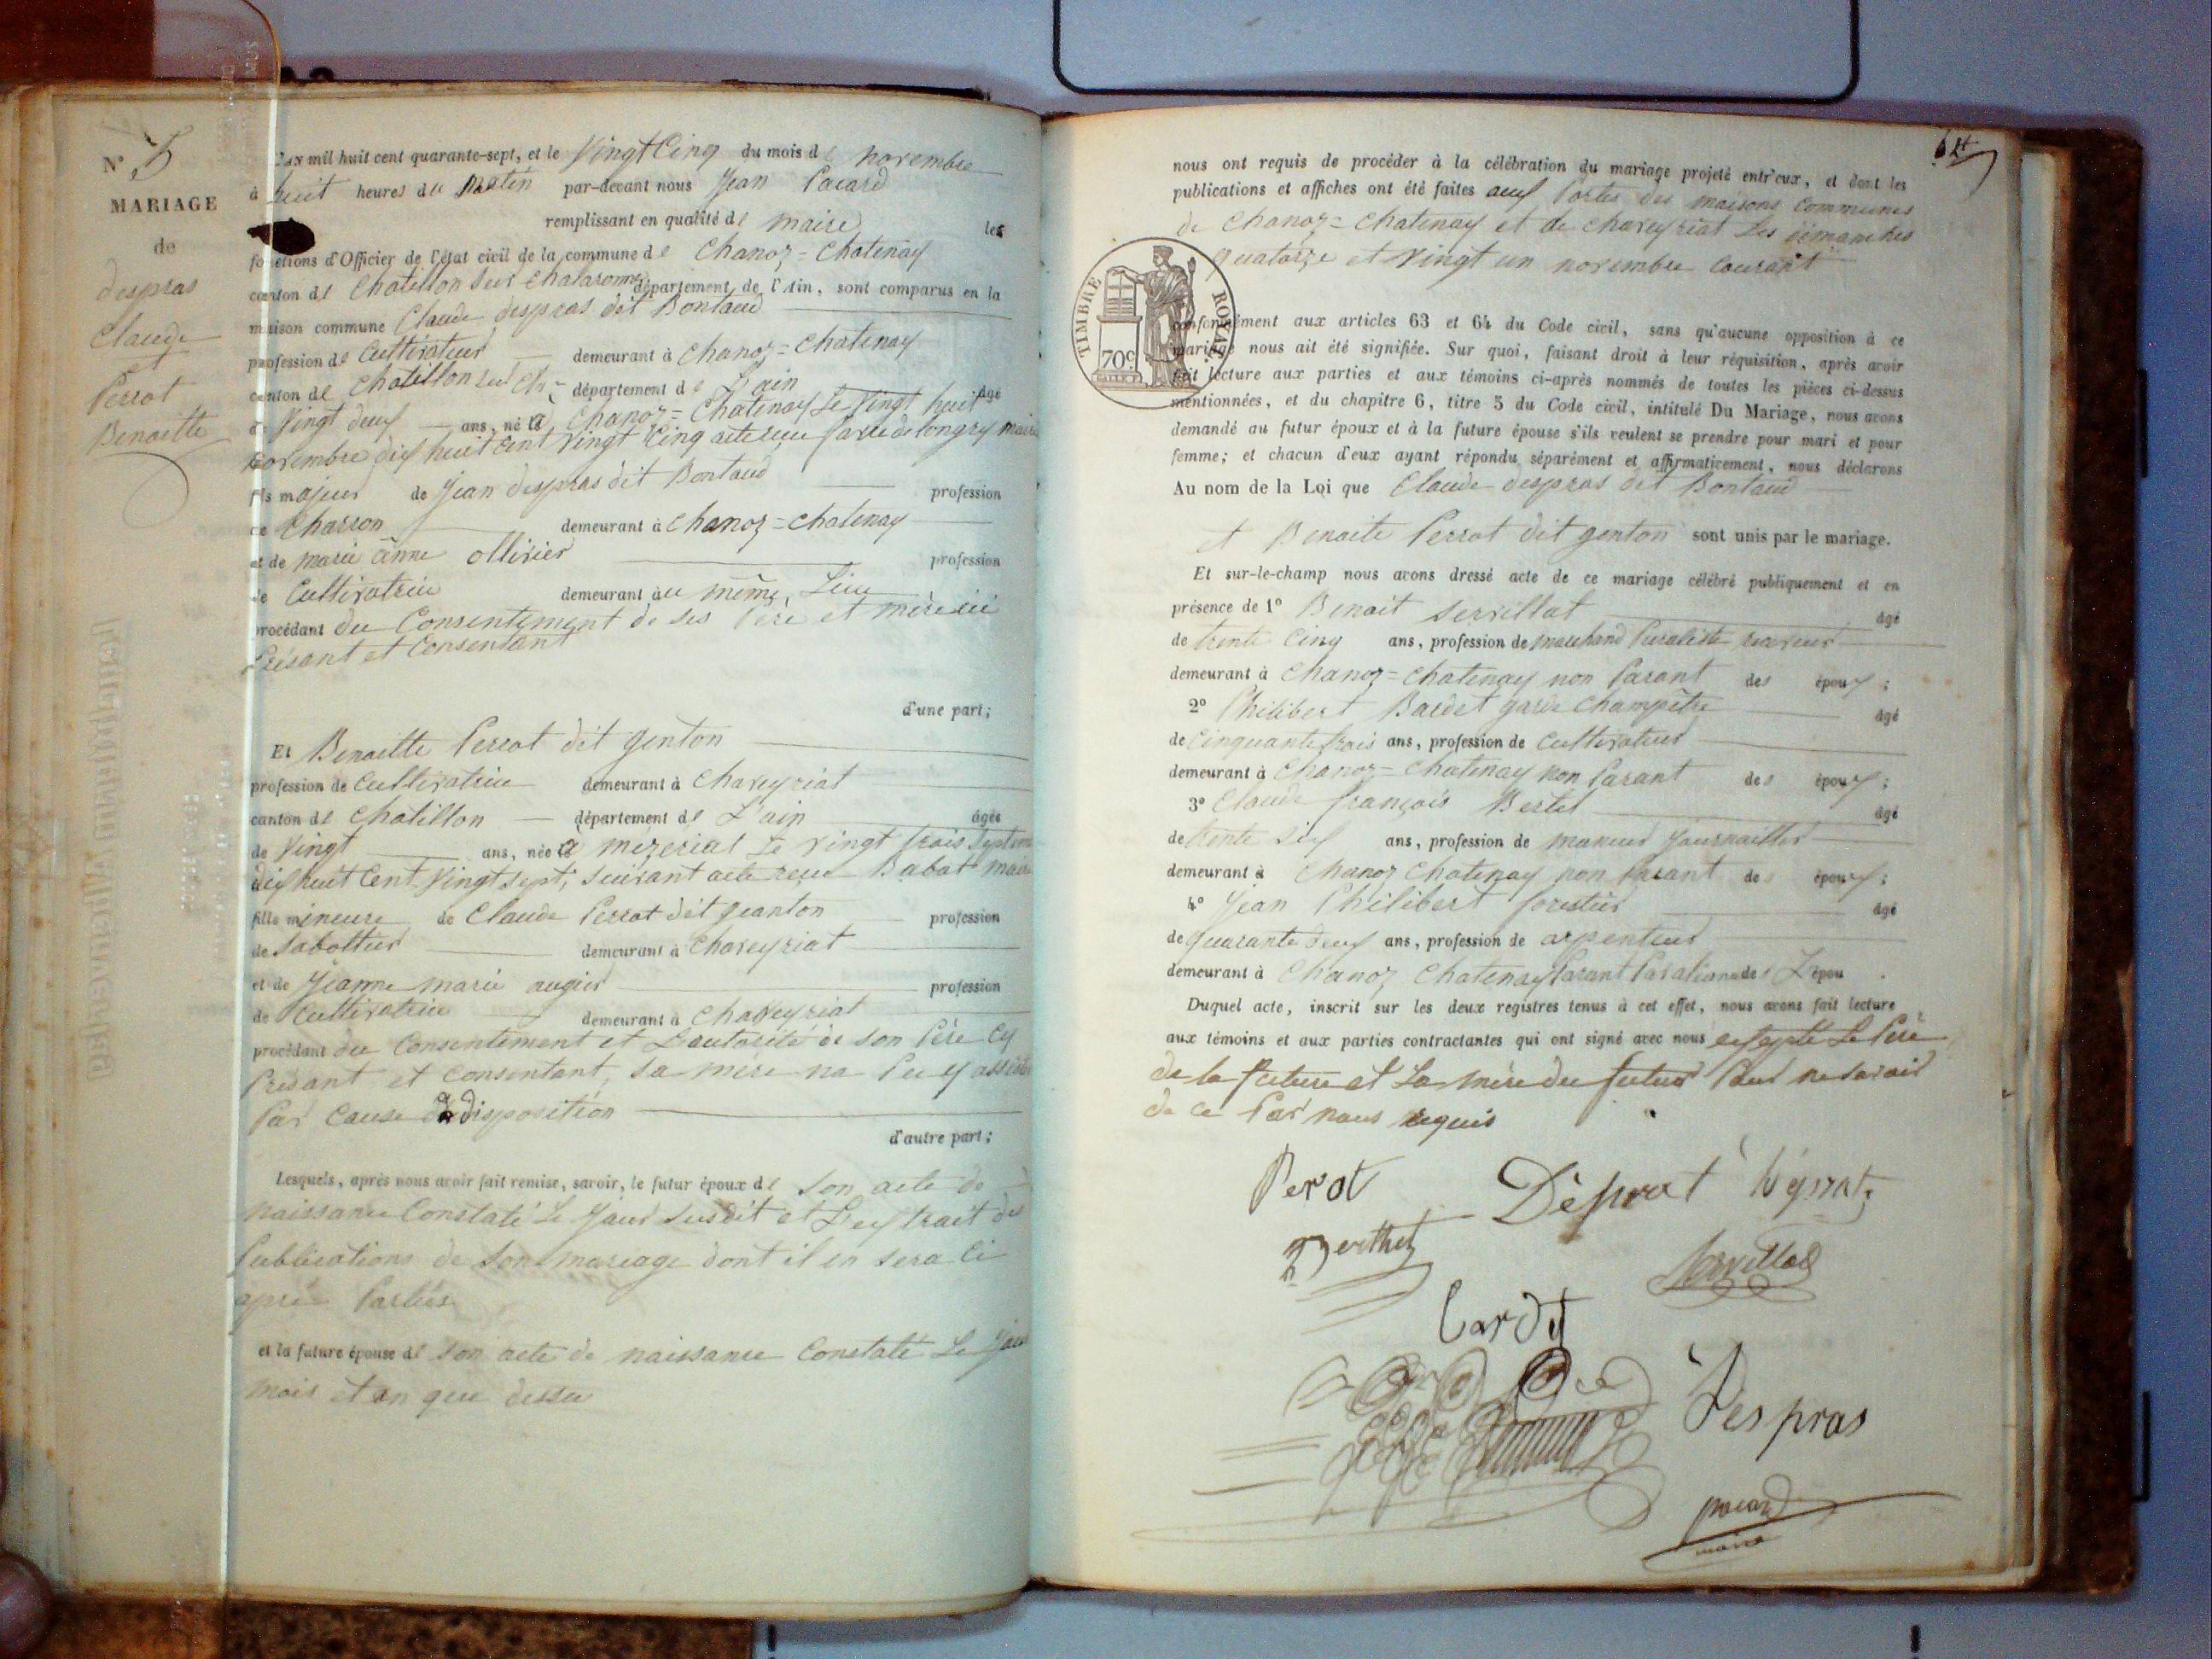 N° 5
MARIAGE
de
despras
Claude
et
Perrot
Benoitte
L'an mil huit cent quarante-sept, et le Vingt Cinq du mois de novembre
à huit heures du Matin par-devant nous Jean Pacard
remplissant en qualité de maire les
fonctions d'Officier de l'état civil de la commune de Chanoz=Chatenay
canton de Chatillon Sur Chalaronne, département de l'Ain, sont comparus en la
maison commune Claude despras dit Bontaud
profession de Cultivateur demeurant à Chanoz=Chatenay
canton de Chatillon sur Ch= département de L'ain âgé
de Vingt deux ans, né à Chanoz=Chatenay Le Vingt huit
novembre dix huit Cent Vingt Cinq acte reçu de longry maire
fils majeur de Jean despras dit Bontaud profession
de Charron demeurant à Chanoz=Chatenay
et de marie anne ollivier profession
de Cultivatrice demeurant au même Lieu
procédant du Consentement de ses Père et mère ici
Présant et Consentant
d'une part;
Et Benoitte Perrot dit genton
profession de Cultivatrice demeurant à Chaveyriat
canton de Chatillon département de L'ain âgée
de Vingt ans, née à mézériat Le Vingt trois Septem
dix huit Cent Vingt sept, suivant acte reçu Babat maire
fille mineure de Claude Perrot dit geanton profession
de Sabottier demeurant à Chaveyriat
et de Jeanne marie augier profession
de Cultivatrice demeurant à Chaveyriat
procédant du Consentement et L'autorité de son Père Cy
Présant et Consentant, sa mère na Pu y assister
Par Cause disposition
d'autre part;
Lesquels, après nous avoir fait remise, savoir, le futur époux de son acte de
naissance Constaté Le Jour susdit et L'extrait des
Publications de Son mariage dont il en sera Ci
après Parlés
et la future épouse de son acte de naissance Constaté Le Jour
mois et an que dessu
64
nous ont requis de procéder à la célébration du mariage projeté entr'eux, et dont les
publications et affiches ont été faites aux Portes des maisons Communes
de Chanoz=Chatenay et de Chaveyriat Les dimanches
quatorze et Vingt un novembre Courant
TIMBRE ROYAL
70c
conformément aux articles 63 et 64 du Code civil, sans qu'aucune opposition à ce
mariage nous ait été signifiée. Sur quoi, faisant droit à leur réquisition, après avoir
fait lecture aux parties et aux témoins ci-après nommés de toutes les pièces ci-dessus
mentionnées, et du chapitre 6, titre 5 du Code civil, intitulé Du Mariage, nous avons
demandé au futur époux et à la future épouse s'ils veulent se prendre pour mari et pour
femme; et chacun d'eux ayant répondu séparément et affirmativement, nous déclarons
Au nom de la Loi que Claude despras dit Bontaud
et Benoite Perrot dit genton sont unis par le mariage.
Et sur-le-champ nous avons dressé acte de ce mariage célébré publiquement et en
présence de 1° Benoit Servillat âgé
de trente Cinq ans, profession de marchand
demeurant à Chanoz=Chatenay non Parant des époux;
2° Philibert Bardet garde Champêtre âgé
de Cinquante trois ans, profession de Cultivateur
demeurant à Chanoz=Chatenay non Parant des époux;
3° Claude françois Bertet âgé
de trente six ans, profession de maneur Journaillier
demeurant à Chanoz Chatenay non Parant des époux;
4° Jean Philibert forestier âgé
de quarante deux ans, profession de arpenteur
demeurant à Chanoz Chatenay Parant Par aliance de L'épou .
Duquel acte, inscrit sur les deux registres tenus à cet effet, nous avons fait lecture
aux témoins et aux parties contractantes qui ont signé avec nous excepté Le Père
de la future et La mère du futur Pour ne Savoir
de ce Par nous requis
Perot Déprat Déprat
Berthet Servillat
Bardet
Despras
pacard
maire